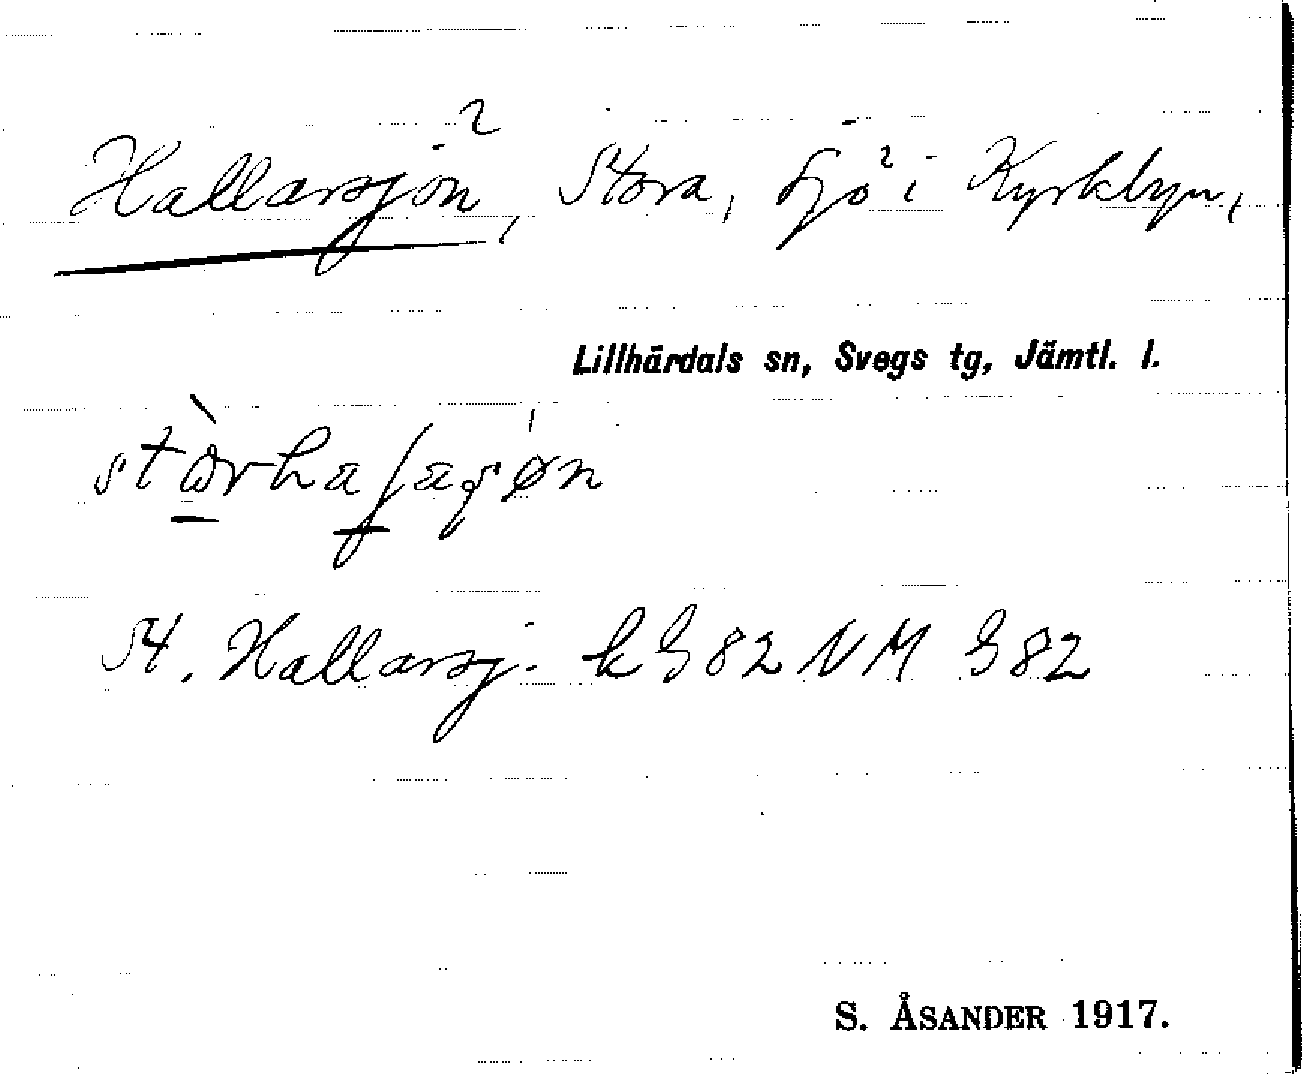 Hallarsjön², Stora, sjö² i Kyrkbyn,
Lillhärdals sn, Svegs tg, Jämtl. l.
St. Hallarsj. k G 82 NM G 82
S. ÅSANDER 1917.